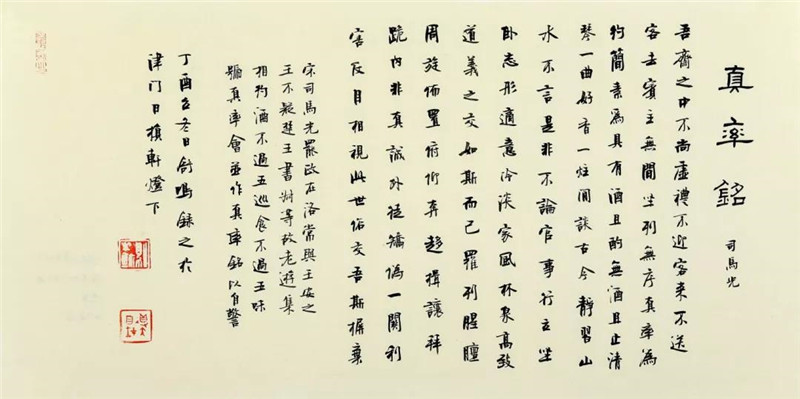 真率銘
司馬光
吾齋之中不尚虛禮不迎客来不送
客去賓主無間坐列無序真率為
約簡素為具有酒且酌無酒且止清
琴一曲好香一炷閒談古今靜習山
水不言是非不論官事行立坐
卧忘形適意冷淡家風林泉高致
道義之交如斯而已羅列腥膻
周旋佈置俯仰奔趨揖讓拜
跪内非真誠外徒矯偽一關利
害反目相視此世俗交吾斯摒棄
宋司馬光罷政在洛常與王安之
王不疑楚王書等故老遊集
相約酒不過五巡食不過五味
號真率會並作真率銘以自警
丁酉立冬日舒鳴錄之於
津門日損軒燈下